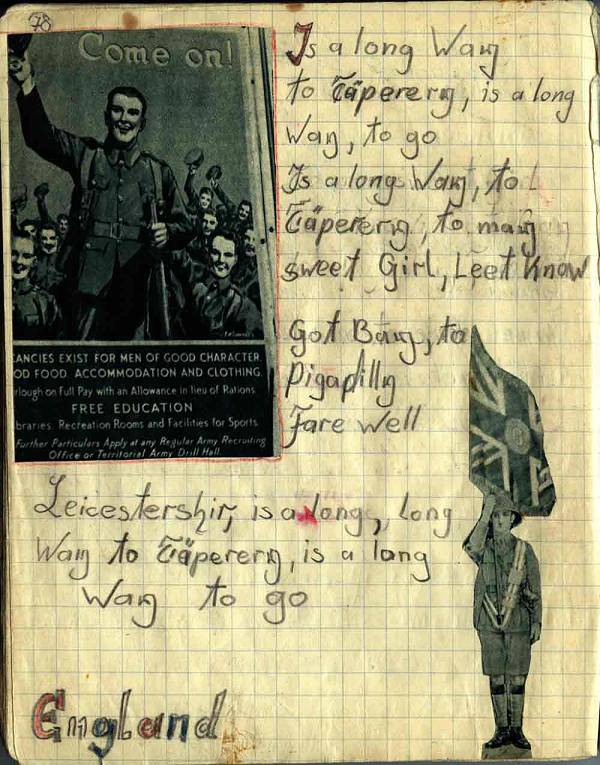 78
Come on!
ANCIES EXIST FOR MEN OF GOOD CHARACTER.
OD FOOD. ACCOMMODATION AND CLOTHING.
rlough on Full Pay with an Allowance in lieu of Rations.
FREE EDUCATION
braries. Recreation Rooms and Facilities for Sports.
Further Particulars Apply at any Regular Army Recruiting
Office or Territorial Army Drill Hall.
Is a long Way
to Täpерery, is a long
Way, to go
Is a long Way, to
Täperery, to may
sweet Girl, Leet Know
Got Bay, to
Pigapilly
Fare well
Leicestershir, is a long, Long
Way to Täperery, is a long
Way to go
England